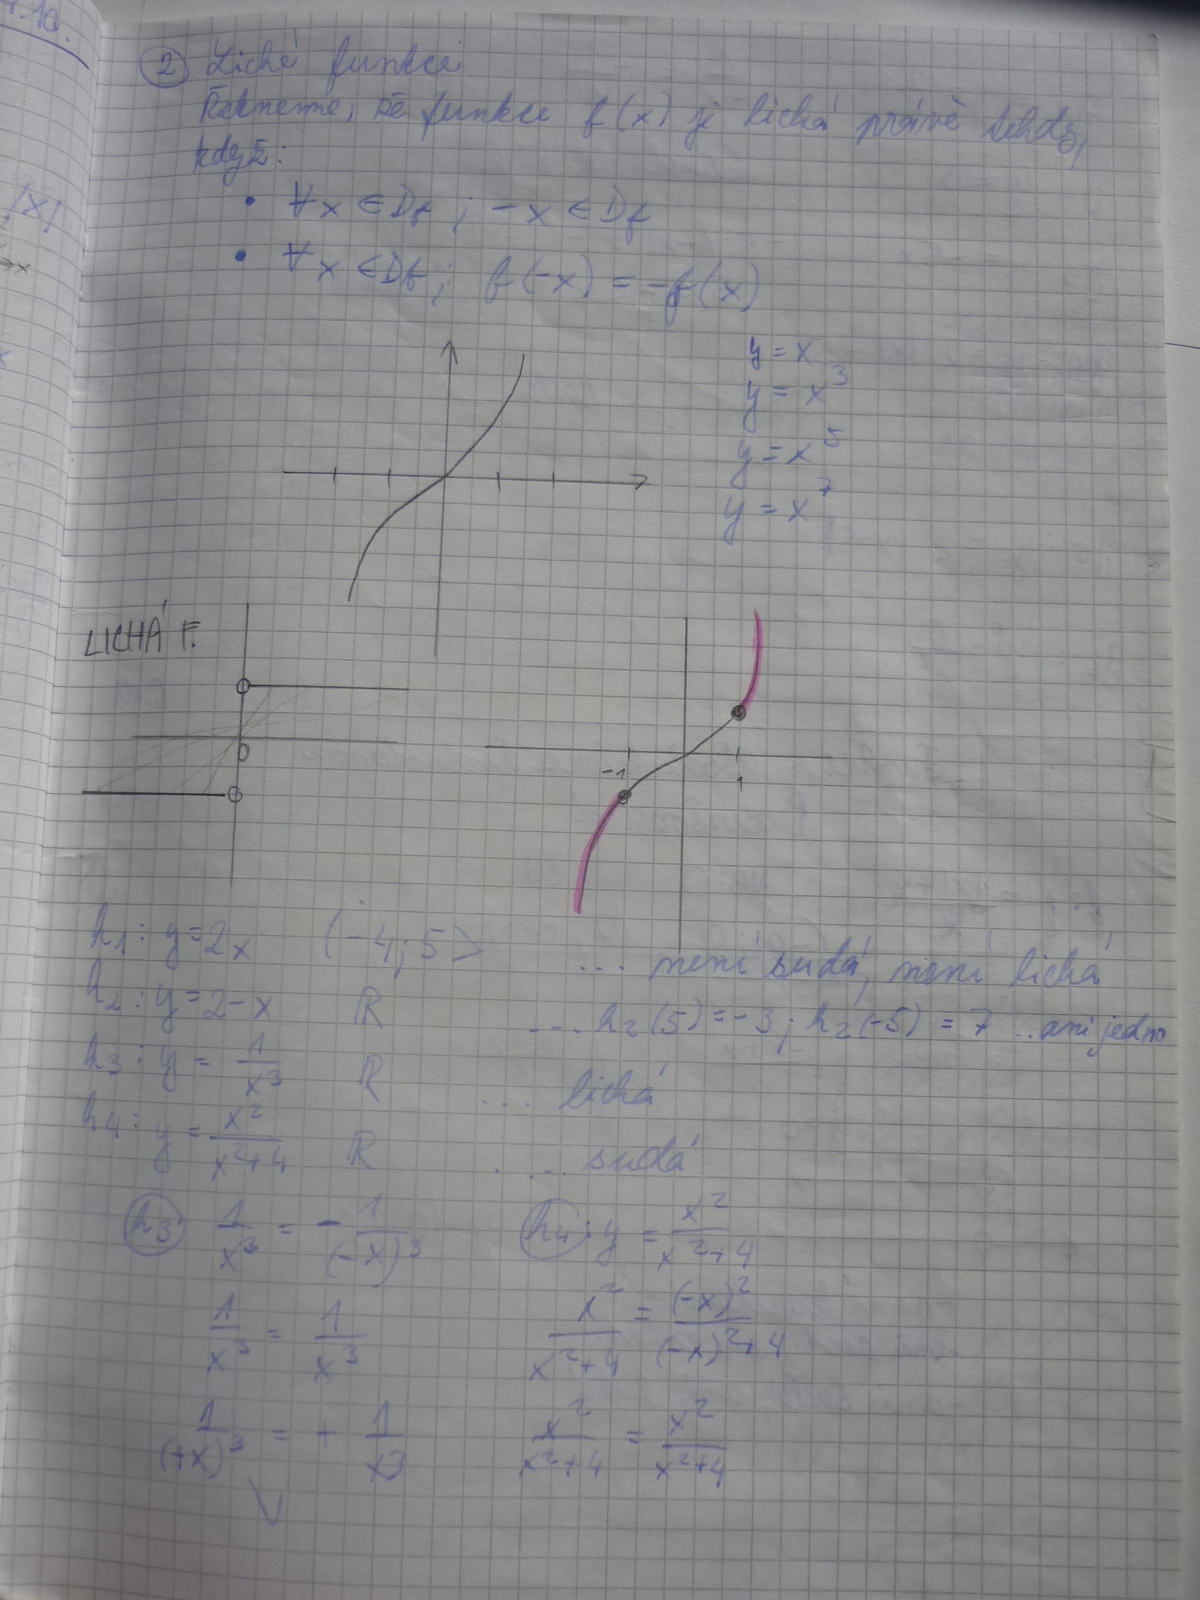 ② Liché funkce
Řekneme, že funkce f(x) je lichá právě tehdy,
když:
• ∀x ∈ Df ; -x ∈ Df
• ∀x ∈ Df ; f(-x) = -f(x)
y = x
y = x³
y = x⁵
y = x⁷
LICHÁ F.
0
-1
1
h₁: y = 2x (-4; 5> ... není sudá, není lichá
h₂: y = 2-x ℝ ... h₂(5) = -3; h₂(-5) = 7 ... ani jedno
h₃: y = 1/x³ ℝ ... lichá
h₄: y = x²/(x²+4) ℝ ... sudá
h₃: 1/x³ = - 1/(-x)³
1/x³ = 1/x³
1/(+x)³ = + 1/x³
h₄: y = x²/(x²+4)
x²/(x²+4) = (-x)²/((-x)²+4)
x²/(x²+4) = x²/(x²+4)